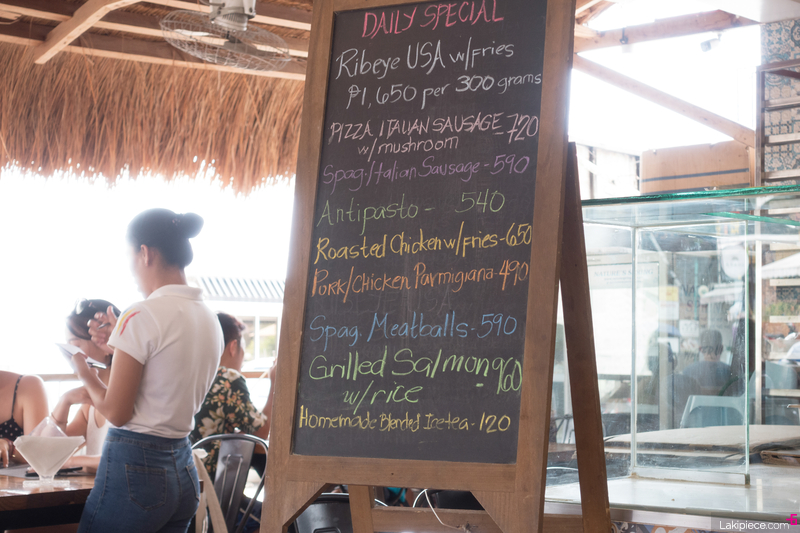 DAILY SPECIAL
Ribeye USA w/Fries
₱1,650 per 300 grams
PIZZA ITALIAN SAUSAGE 720
w/mushroom
Spag./Italian Sausage - 590
Antipasto - 540
Roasted Chicken w/fries - 650
Pork/Chicken Parmigiana - 490
Spag. Meatballs - 590
Grilled Salmon - 960
w/rice
Homemade Blended Icetea - 120
Lakipiece.com
5